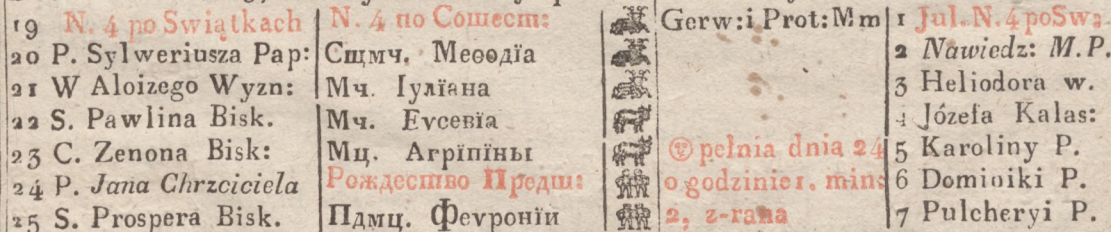 19 N. 4 po Swiątkach N. 4 по Сошест: Gerw: i Prot: Mm 1 Jul. N. 4 po Sw:
20 P. Sylweriusza Pap: Сщмч. Меѳодїа 2 Nawiedz: M. P.
21 W Aloizego Wyzn: Мч. Іулїана 3 Heliodora w.
22 S. Pawlina Bisk. Мч. Еѵсевїа 4 Józefa Kalas:
23 C. Zenona Bisk: Мц. Агрїпїны pełnia dnia 24 5 Karoliny P.
24 P. Jana Chrzciciela Рождество Предш: o godzinie 1. min: 6 Dominiki P.
25 S. Prospera Bisk. Пдмц. Феѵронїи 2, z-rana 7 Pulcheryi P.